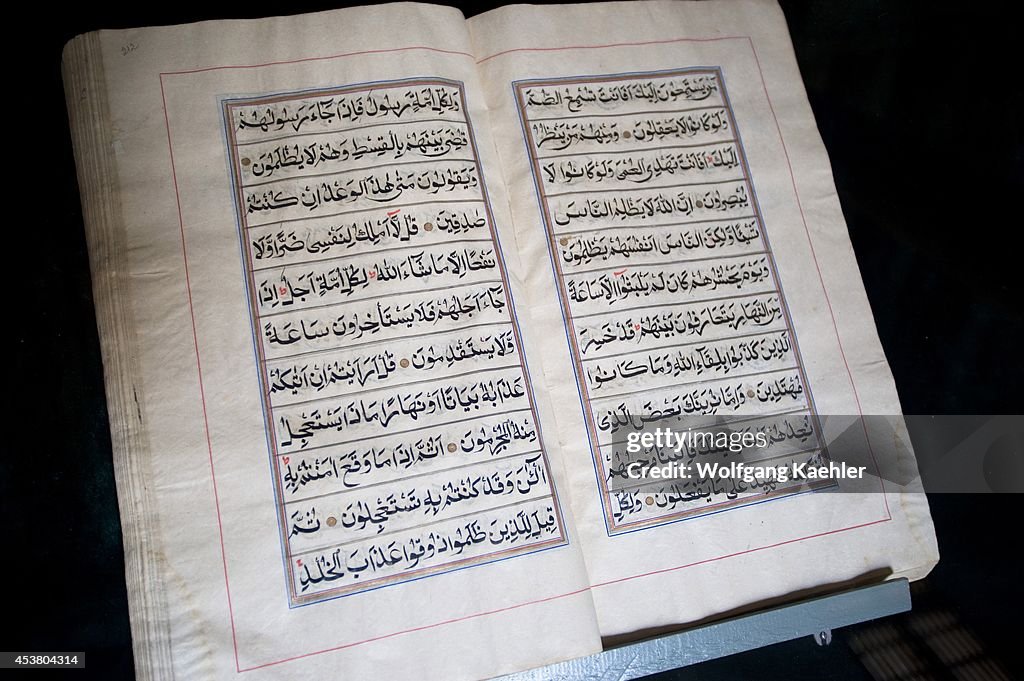 مَّنْ يَسْتَمِعُونَ إِلَيْكَ أَفَأَنْتَ تُسْمِعُ الصُّمَّ
وَلَوْ كَانُوا لَا يَعْقِلُونَ وَمِنْهُمْ مَنْ يَنْظُرُ
إِلَيْكَ أَفَأَنْتَ تَهْدِي الْعُمْيَ وَلَوْ كَانُوا لَا
يُبْصِرُونَ إِنَّ اللَّهَ لَا يَظْلِمُ النَّاسَ
شَيْئًا وَلَكِنَّ النَّاسَ أَنْفُسَهُمْ يَظْلِمُونَ
وَيَوْمَ يَحْشُرُهُمْ كَأَنْ لَمْ يَلْبَثُوا إِلَّا سَاعَةً
مِنَ النَّهَارِ يَتَعَارَفُونَ بَيْنَهُمْ قَدْ خَسِرَ
الَّذِينَ كَذَّبُوا بِلِقَاءِ اللَّهِ وَمَا كَانُوا
مُهْتَدِينَ وَإِمَّا نُرِيَنَّكَ بَعْضَ الَّذِي
نَعِدُهُمْ
عَلَى مَا يَفْعَلُونَ وَلِكُلِّ
212
وَلِكُلِّ أُمَّةٍ رَسُولٌ فَإِذَا جَاءَ رَسُولُهُمْ
قُضِيَ بَيْنَهُمْ بِالْقِسْطِ وَهُمْ لَا يُظْلَمُونَ
وَيَقُولُونَ مَتَى هَذَا الْوَعْدُ إِنْ كُنْتُمْ
صَادِقِينَ قُلْ لَا أَمْلِكُ لِنَفْسِي ضَرًّا وَلَا
نَفْعًا إِلَّا مَا شَاءَ اللَّهُ لِكُلِّ أُمَّةٍ أَجَلٌ إِذَا
جَاءَ أَجَلُهُمْ فَلَا يَسْتَأْخِرُونَ سَاعَةً
وَلَا يَسْتَقْدِمُونَ قُلْ أَرَأَيْتُمْ إِنْ أَتَاكُمْ
عَذَابُهُ بَيَاتًا أَوْ نَهَارًا مَاذَا يَسْتَعْجِلُ
مِنْهُ الْمُجْرِمُونَ أَثُمَّ إِذَا مَا وَقَعَ آمَنْتُمْ بِهِ
آلْآنَ وَقَدْ كُنْتُمْ بِهِ تَسْتَعْجِلُونَ ثُمَّ
قِيلَ لِلَّذِينَ ظَلَمُوا ذُوقُوا عَذَابَ الْخُلْدِ
gettyimages®
Wolfgang Kaehler
453804314